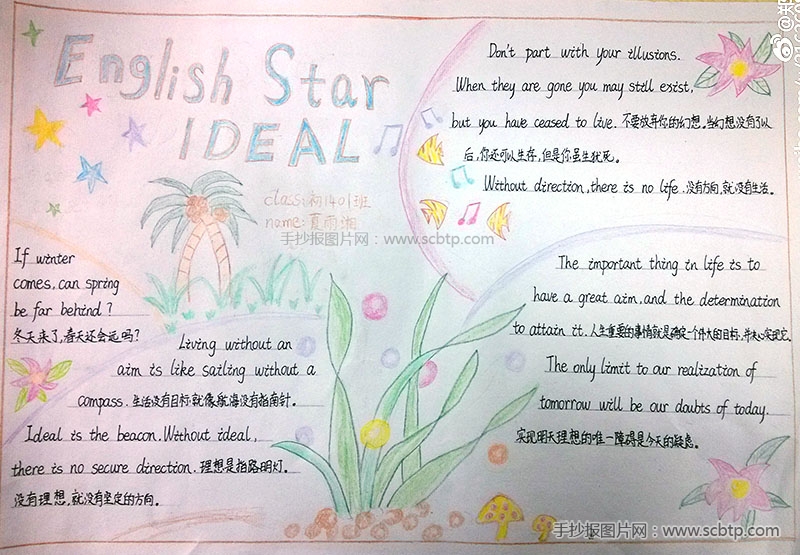 English Star
IDEAL
class:初1401班
name:夏雨湘
手抄报图片网:www.scbtp.com
If winter
comes, can spring
be far behind?
冬天来了,春天还会远吗?
Living without an
aim is like sailing without a
compass. 生活没有目标就像航海没有指南针。
Ideal is the beacon. Without ideal,
there is no secure direction. 理想是指路明灯。
没有理想,就没有坚定的方向。
Don't part with your illusions.
When they are gone you may still exist,
but you have ceased to live. 不要放弃你的幻想。当幻想没有了以
后,你还可以生存,但是你虽生犹死。
Without direction, there is no life. 没有方向,就没有生活。
The important thing in life is to
have a great aim, and the determination
to attain it. 人生重要的事情就是确定一个伟大的目标,并决心实现它。
The only limit to our realization of
tomorrow will be our doubts of today.
实现明天理想的唯一障碍是今天的疑惑。
手抄报图片网:www.scbtp.com